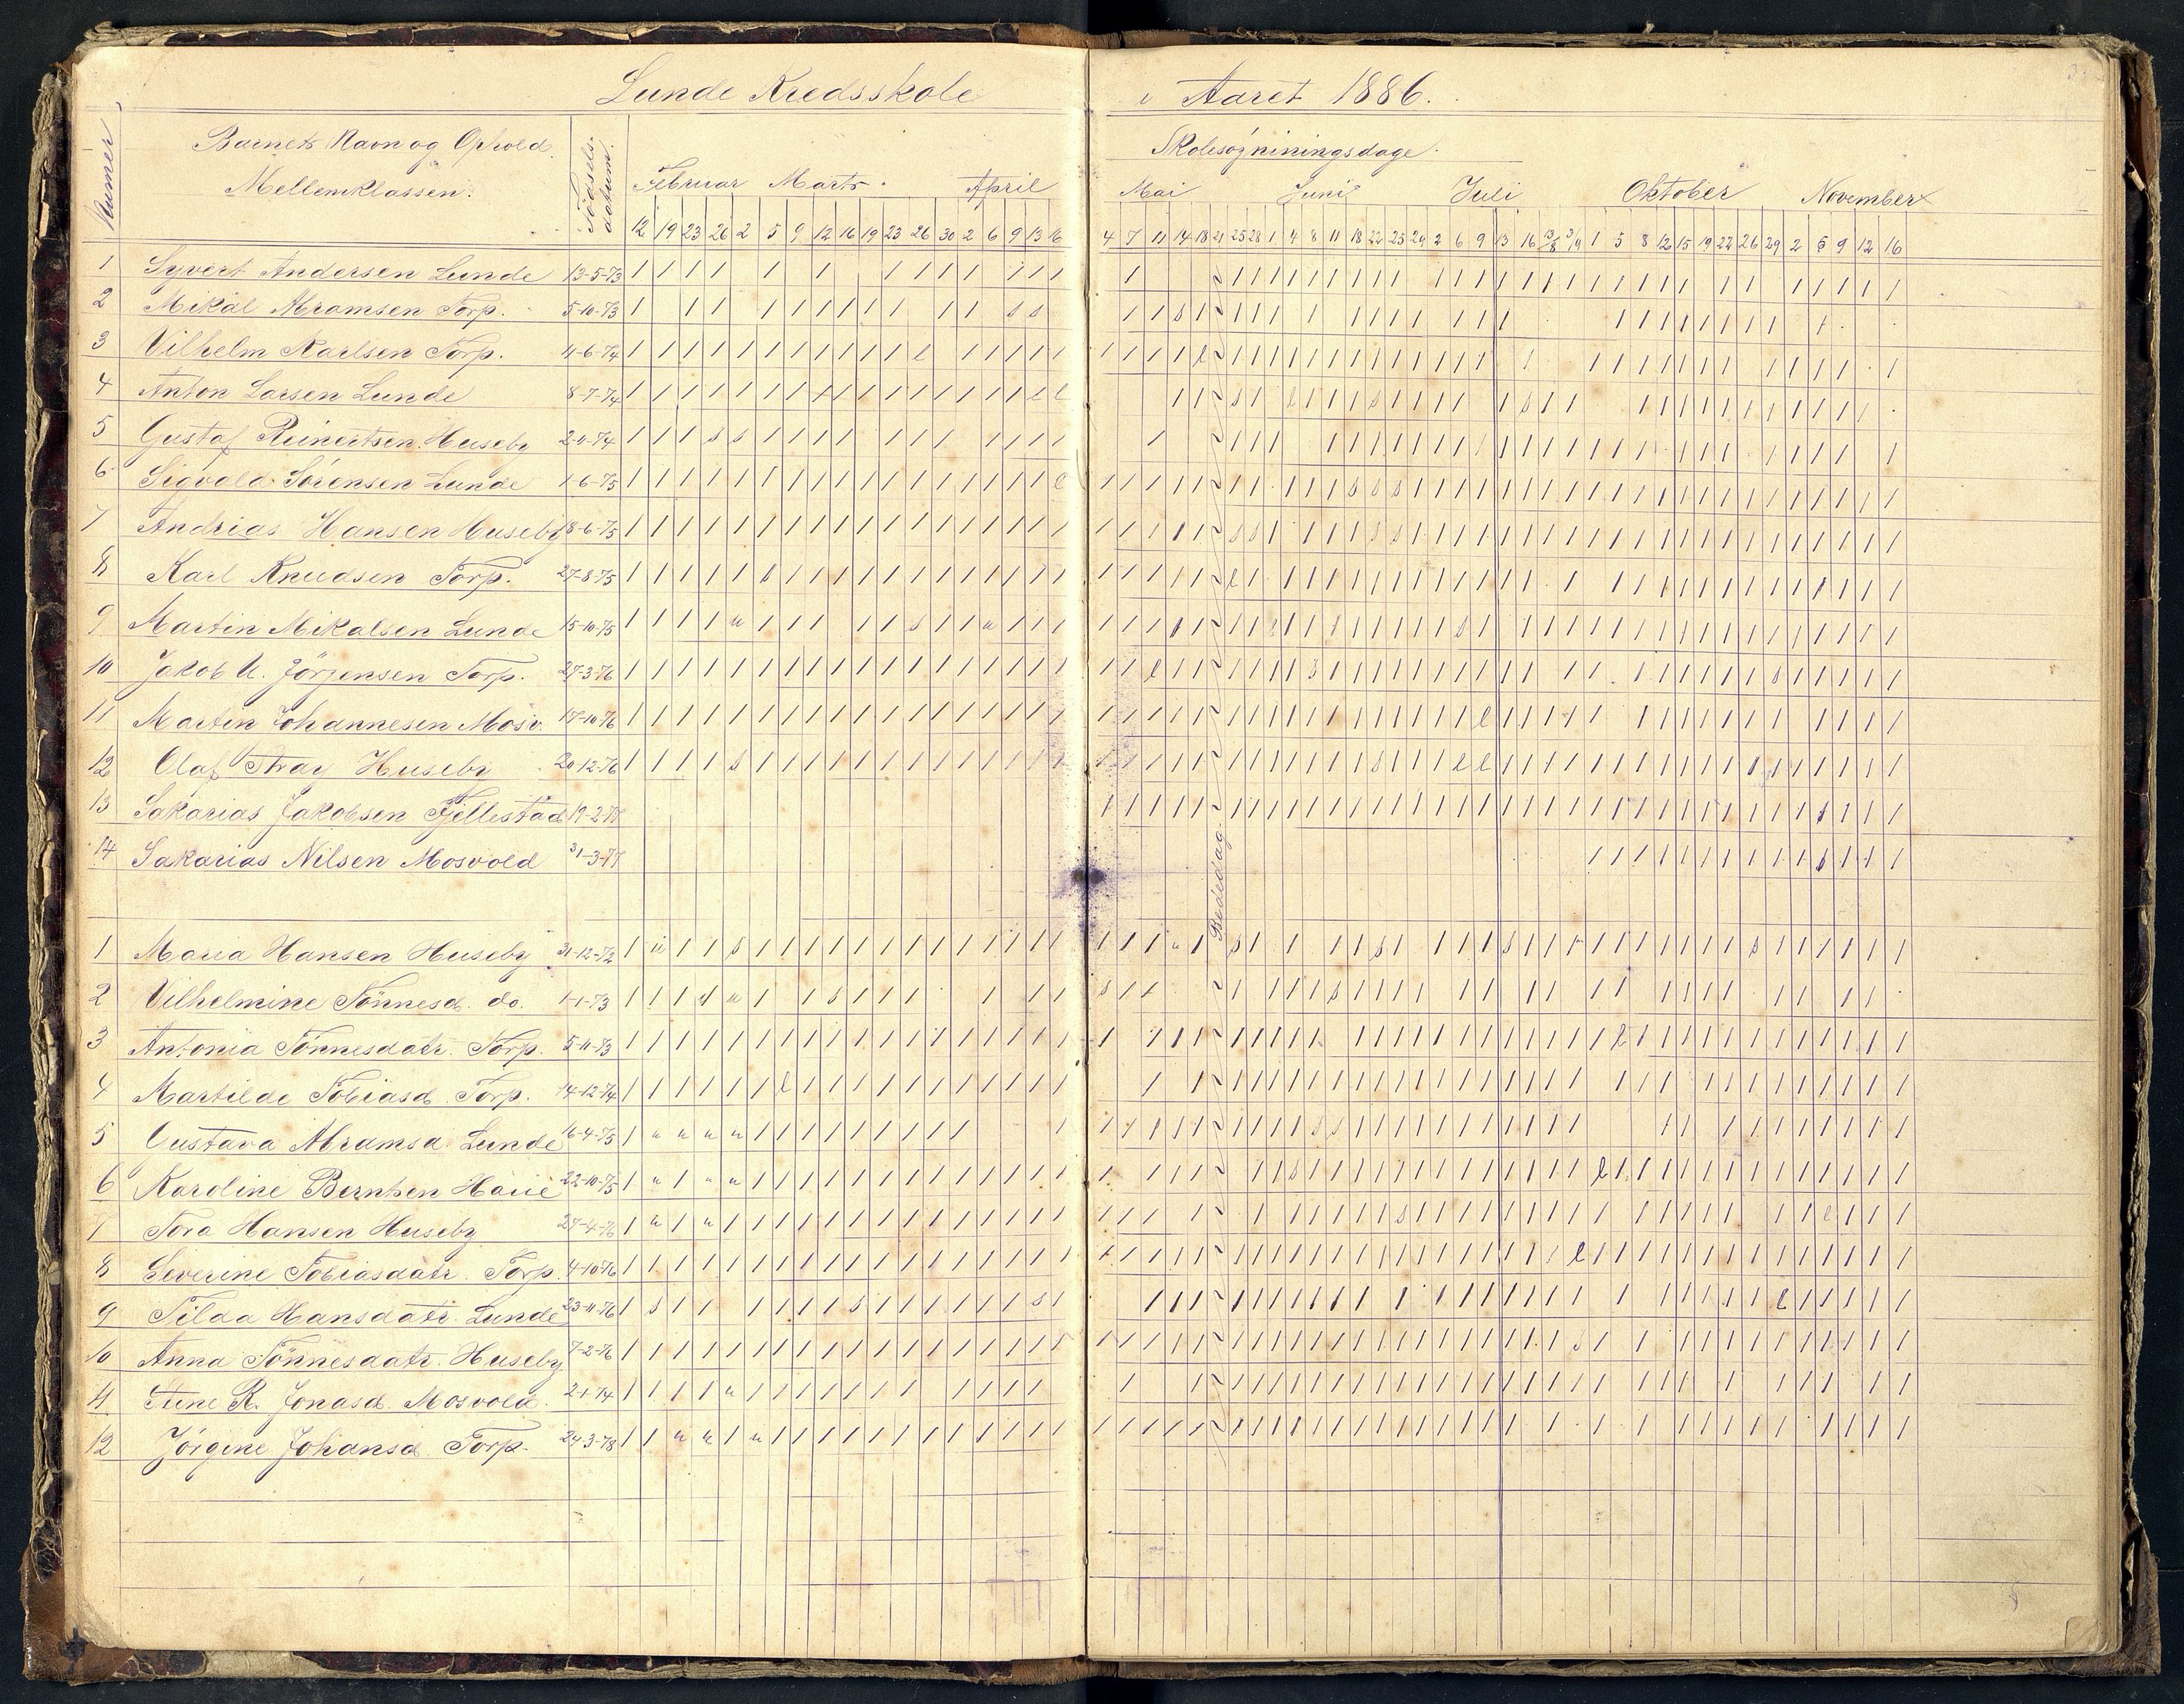 Lunde Kredsskole i Aaret 1886.
Numer
Barnets Navn og Ophold.
Mellemklassen.
Fødsels-
datum.
Skolesøgniningsdage.
Februar Marts. April Mai Juni Juli Oktober November
12 19 23 26 2 5 9 12 16 19 23 26 30 2 6 9 13 16
4 7 11 14 18 21 25 28 1 4 8 11 18 22 25 29 2 6 9 13 16 13/8 3/9 1 5 8 12 15 19 22 26 29 2 5 9 12 16
1 Syvert Andersen Lunde 13-5-73
2 Mikal Abramsen Torp. 5-10-73
3 Vilhelm Karlsen Torp. 11-6-74
4 Anton Larsen Lunde 8-7-74
5 Gustaf Reinertsen Huseby 2-11-74
6 Sigvald Sørensen Lunde 1-6-75
7 Andrias Hansen Huseby 18-6-75
8 Karl Knudsen Torp. 27-8-75
9 Martin Mikalsen Lunde 15-10-75
10 Jakob A. Jörjensen Torp. 27-3-76
11 Martin Johannesen Mosv. 17-10-76
12 Olaf Thray Huseby 20-12-76
13 Sakarias Jakobsen Fjellestad 19-2-77
14 Sakarias Nilsen Mosvold 31-3-77
Bededag
1 Maria Hansen Huseby 31-12-72
2 Vilhelmine Tönnesd. do. 1-1-73
3 Antonia Tönnesdatr. Torp. 5-11-73
4 Martilde Tobiasd. Torp. 14-12-74
5 Gustava Abramsd. Lunde 16-4-75
6 Karoline Berntsen Haue 22-10-75
7 Tora Hansen Huseby 27-4-76
8 Severine Tobiasdatr. Torp 4-10-76
9 Tilda Hansdatr. Lunde 23-11-76
10 Anna Tönnesdatr. Huseby 7-2-76
11 Stine R. Jonasd. Mosvold. 2-1-74
12 Jörgine Johansd. Torp. 24-3-78